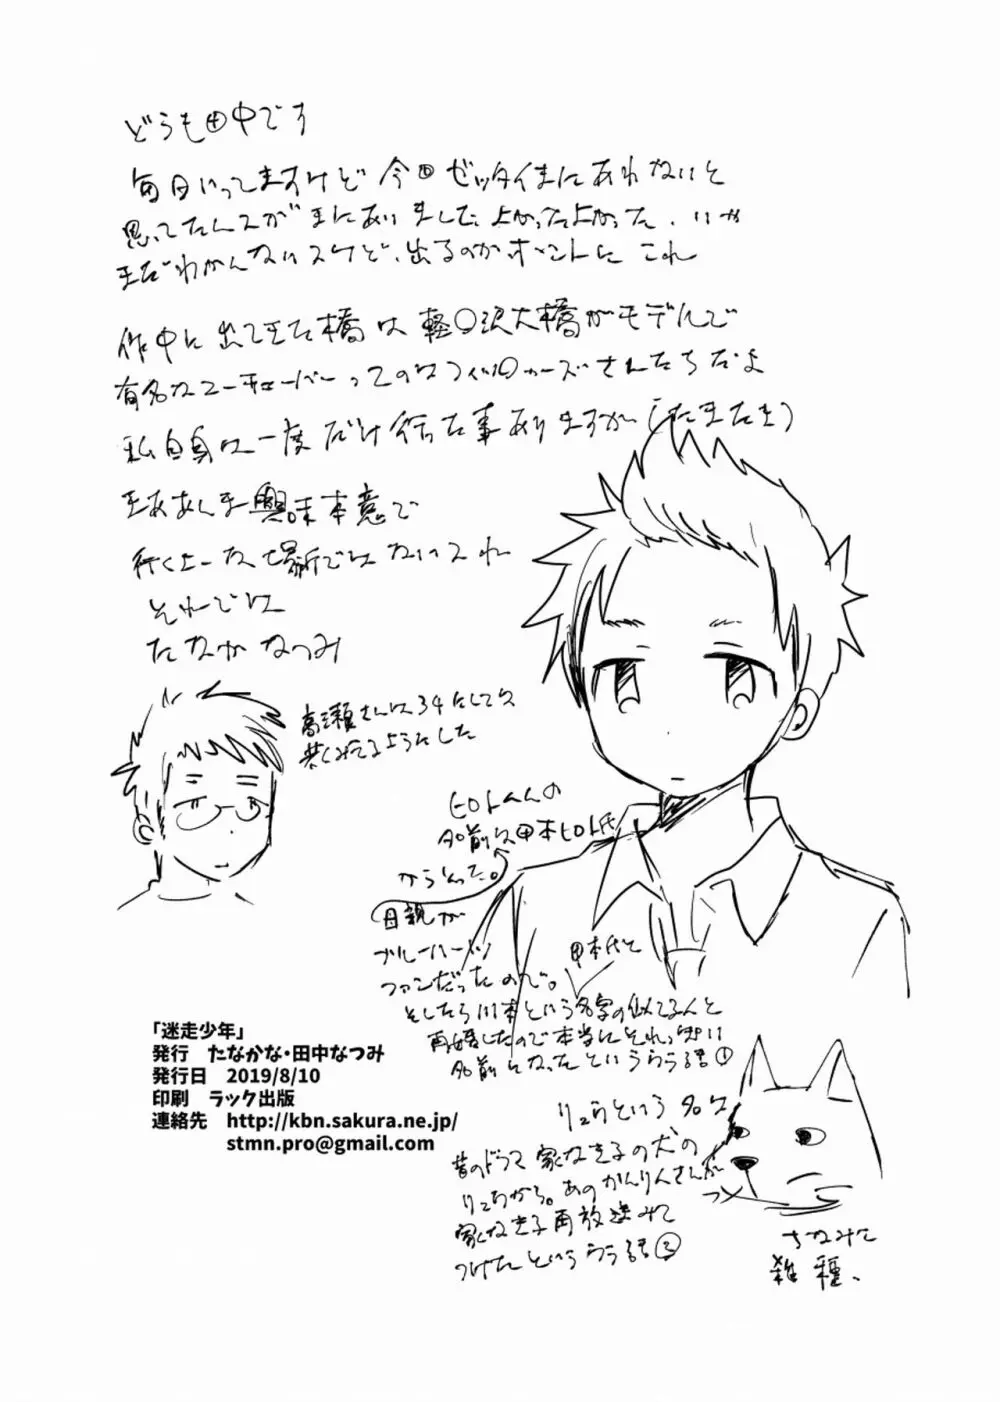 どうも田中です
毎日いってますけど今回ゼッタイまにあわないと
思ってたんスがまにあいました、よかったよかった、いや
まだわかんないスけど、出るのかホントにこれ
作中に出てきた橋は軽〇沢大橋がモデルで
有名なユーチューバーってのはフィ〇カーズさんたちだよ
私自身は一度だけ行った事ありますが(たまたま)
まああんま興味本意で
行くよーな場所ではないスね
それでは
たなかなつみ
高瀬さんは34にしては
若くみえるようにした
ヒロトくんの
名前は甲本ヒロト氏
からとった。
母親が
ブルーハーツ
ファンだったので。
甲本氏と
そしたら川本という名字の似てる人と
再婚したので本当にそれっぽい
名前になったといううら話①
リュウという名は
昔のドラマ家なき子の犬の
リュウから。あのかんりんさんが
家なき子再放送みて
つけたといううら話②
ちなみに
雑種、
「迷走少年」
発行　たなかな・田中なつみ
発行日　2019/8/10
印刷　ラック出版
連絡先　http://kbn.sakura.ne.jp/
stmn.pro@gmail.com